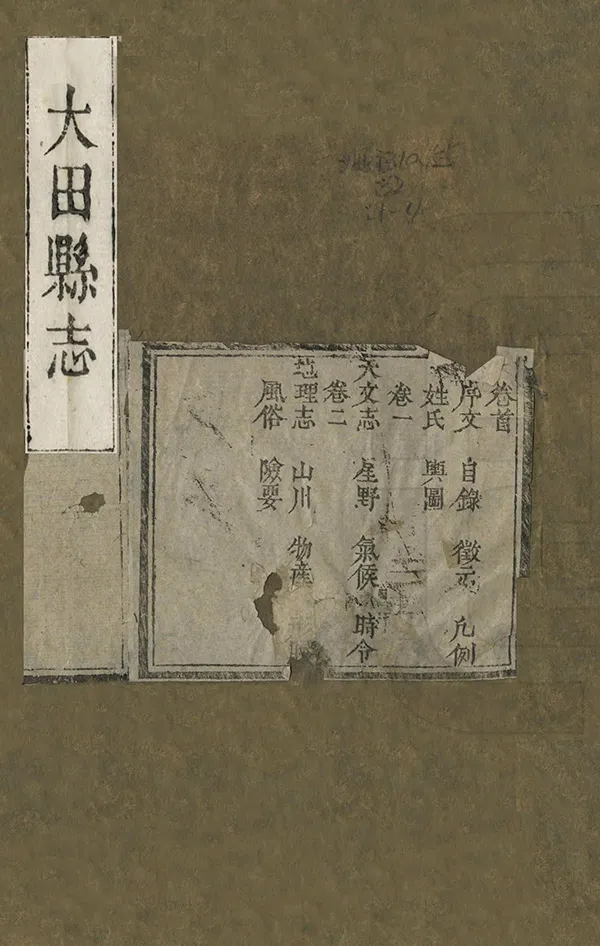 大田縣志
卷首
序文 目錄 徵示 凡例
姓氏 輿圖
卷一
天文志 星野 氣候 時令
卷二
地理志 山川 物産
風俗 險要